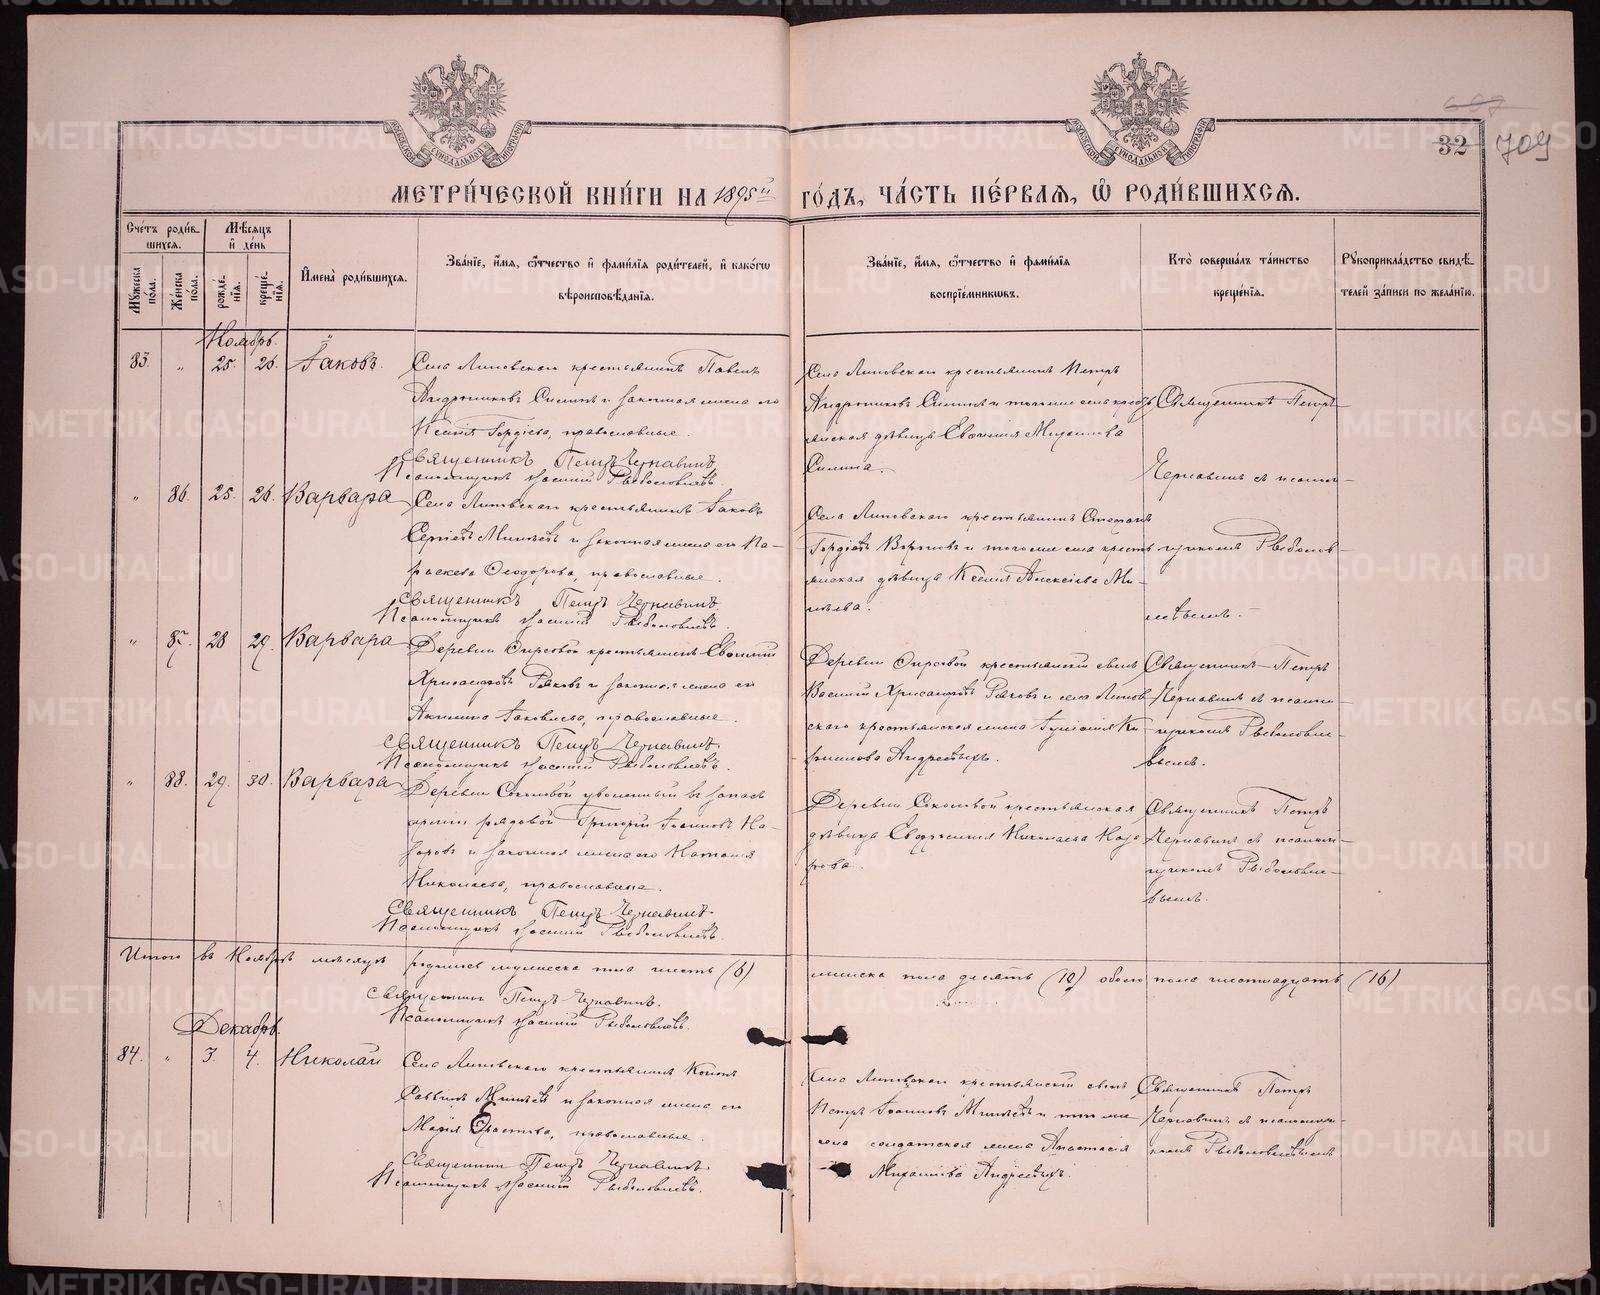 32 709
МЕТРИ́ЧЕСКОЙ КНИ́ГИ НА 1895й ГО́ДЪ, ЧА́СТЬ ПЕ́РВАЯ, Ѿ РОДИ́ВШИХСЯ.
Сче́тъ роди́вшихся.
Мѣ́сяцъ и҆ де́нь
Му́жеска по́ла.
Же́нска по́ла.
рожде́нїя.
креще́нїя.
И҆мена̀ роди́вшихся.
Зва́нїе, и҆́мя, ѻ҆́тчество и҆ фами́лїя роди́телей, и҆ како́гѡ вѣроисповѣ́данїя.
Зва́нїе, и҆́мя, ѻ҆́тчество и҆ фами́лїя воспрїе́мникѡвъ.
Кто̀ соверша́лъ та́инство креще́нїя.
Рꙋкоприкла́дство свидѣ́телей за́писи по жела́нїю.
Ноябрь.
83. " 25. 26. Іаковъ.
Села Липовскаго крестьянинъ Павелъ
Андрониковъ Силинъ и законная жена его
Ксенія Гордіева, православные.
Священникъ Петръ Чернавинъ
Псаломщикъ Василій Рыболовлевъ.
Села Липовскаго крестьянинъ Петръ
Андрониковъ Силинъ и тогоже села кресть
янская дѣвица Евдокия Михаилова
Силина.
Священникъ Петръ
Чернавинъ съ псалом-
щикомъ Рыболов-
левымъ.
" 86. 25. 26. Варвара
Села Липовскаго крестьянинъ Іаковъ
Сергіевъ Минѣевъ и законная жена его Па-
раскева Ѳеодорова, православные.
Священникъ Петръ Чернавинъ
Псаломщикъ Василій Рыболовлевъ.
Села Липовскаго крестьянинъ Стефанъ
Гордіевъ Вороновъ и тогоже села кресть
янская дѣвица Ксенія Алексіева Ми-
нѣева.
" 87. 28 29. Варвара
Деревни крестьянинъ Евѳимій
Хрисанфовъ Рыковъ и законная жена его
Акилина Іаковлева, православные.
Священникъ Петръ Чернавинъ.
Псаломщикъ Василій Рыболовлевъ.
Деревни крестьянскій сынъ
Василій Хрисанфовъ Рыковъ и села Липов
скаго крестьянская жена Іулианія Ки-
риллова Андреевыхъ.
Священникъ Петръ
Чернавинъ съ псалом-
щикомъ Рыболовле-
вымъ.
" 88. 29. 30. Варвара
Деревни Соколовой уволенный въ запасъ
арміи рядовой Григорій Іоанновъ На-
заровъ и законная жена его Наталія
Николаева, православные.
Священникъ Петръ Чернавинъ.
Псаломщикъ Василій Рыболовлевъ.
Деревни Соколовой крестьянская
дѣвица Евфросинія Николаева Наза
рова.
Священникъ Петръ
Чернавинъ съ псалом-
щикомъ Рыболовле-
вымъ.
Итого въ Ноябрѣ мѣсяцѣ родилось мужеска пола шесть (6) женска пола десять (10) обоего пола шестнадцать (16)
Священникъ Петръ Чернавинъ.
Псаломщикъ Василій Рыболовлевъ.
Декабрь.
84. " 3. 4. Николай
Села Липовскаго крестьянинъ Кононъ
Саввинъ Минѣевъ и законная жена его
Марія Ерастова, православные.
Священникъ Петръ Чернавинъ.
Псаломщикъ Василій Рыболовлевъ.
Села Липовскаго крестьянскій сынъ
Петръ Іоанновъ Минѣевъ и
села солдатская жена Анастасія
Михаилова Андреевыхъ.
Священникъ Петръ
Чернавинъ съ псаломщи-
комъ Рыболовлевымъ